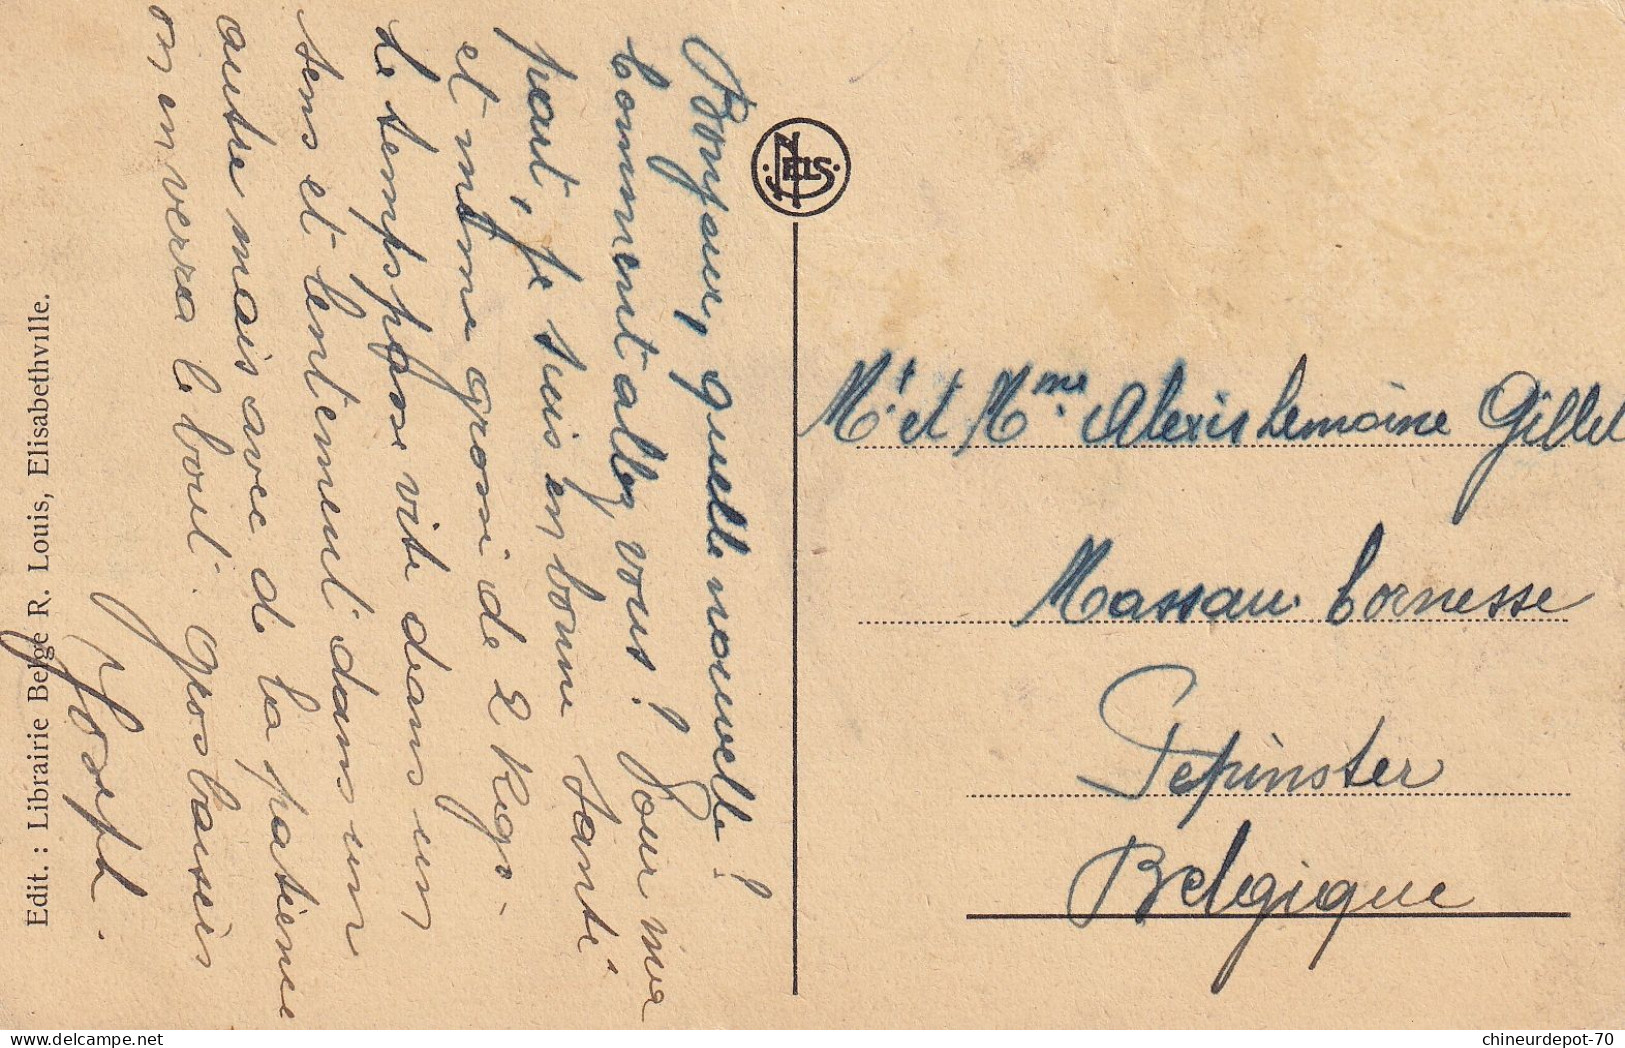 Bonjour, quelle nouvelle!
Comment allez vous! Pour ma
part, je suis en bonne santé
et même grossi de 2 Kgr.
Le temps passe vite dans un
sens et lentement dans un
autre mais avec de la patience
on en verra le bout. Gros baisers
Joseph.
Edit. : Librairie Belge R. Louis, Elisabethville.
NELS
Mr et Mme Alexis Lemoine Gillet
Massau Cornesse
Pepinster
Belgique
chineurdepot-70